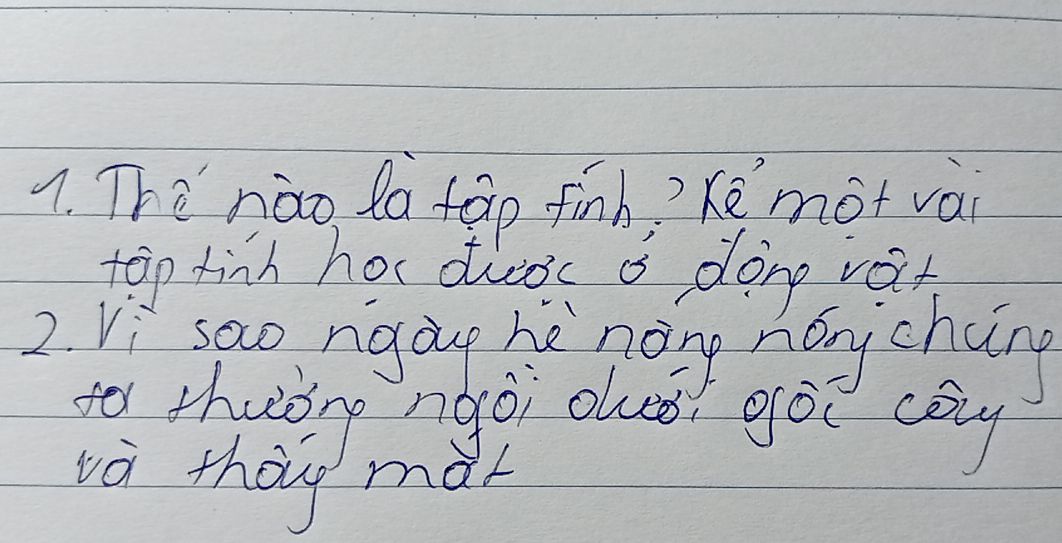 1. Thế nào là tập tính? Kể một vài
tập tính học được ở động vật
2. Vì sao ngày hè nắng nóng chúng
ta thường ngồi dưới gốc cây
và thấy mát